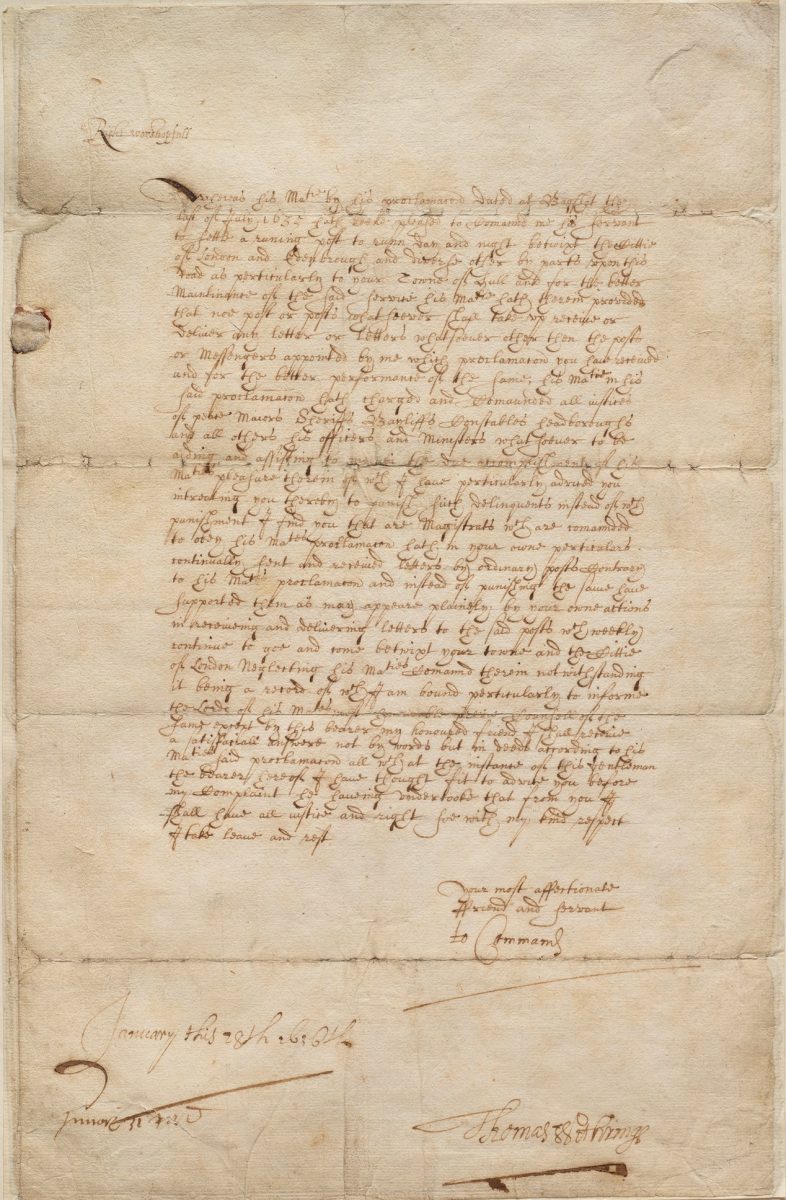 Right worshipfull
Whereas his Matie by his proclamacon dated at Bagshot the
last of July 1635 hath beene pleased to Comaund me his servant
to settle a runing post to runn day and night betwixt the Cittie
of London and Edenbrough and diverse other by parts uppon this
Road as perticularly to your Towne of Hull and for the better
Maintinance of the said service his Matie hath therein provided
that noe post or posts whatsoever shall take up receive or
deliver any letter or letters whatsoever other then the posts
or Messengers appointed by me which proclamacon you have received
and for the better performance of the same, his Matie in his
said proclamacon hath charged and Comaunded all justices
of peace Maiors Sheriffs Bayliffs Constables headboroughs
and all others his officers and Ministers whatsoever to be
aiding and assisting to the due accomplishment of his
Maties pleasure therein of wch I have perticularly advised you
intreating you thereby to punish such delinquents instead of wch
punishment I find you that are Magistrats wch are comaunded
to obey his Maties proclamacon hath in your owne perticulars
continually sent and received letters by ordinary posts Contrary
to his Maties proclamacon and instead of punishing the same have
supported them as may appeare plainely by your owne actions
in receiveing and delivering letters to the said posts wch weekly
continue to goe and come betwixt your towne and the Cittie
of London Neglecting his Maties Comaund therein notwithstanding
it being a record of wch I am bound perticularly to informe
the Lords of his Maties most honorable privie Counsell of the
same except by this bearer my honoured friend I shall receive
a satisfactory answere not by words but in deeds according to his
Maties said proclamacon all wch at the instance of this gentleman
the bearer hereof I have thought fit to advise you before
my Complaint he haveing undertooke that from you I
shall have all justice and right soe with my kind respect
I take leave and rest
your most affectionate
ffriend and servant
to Commaund
January this 28th 1636th
Thomas Withrings